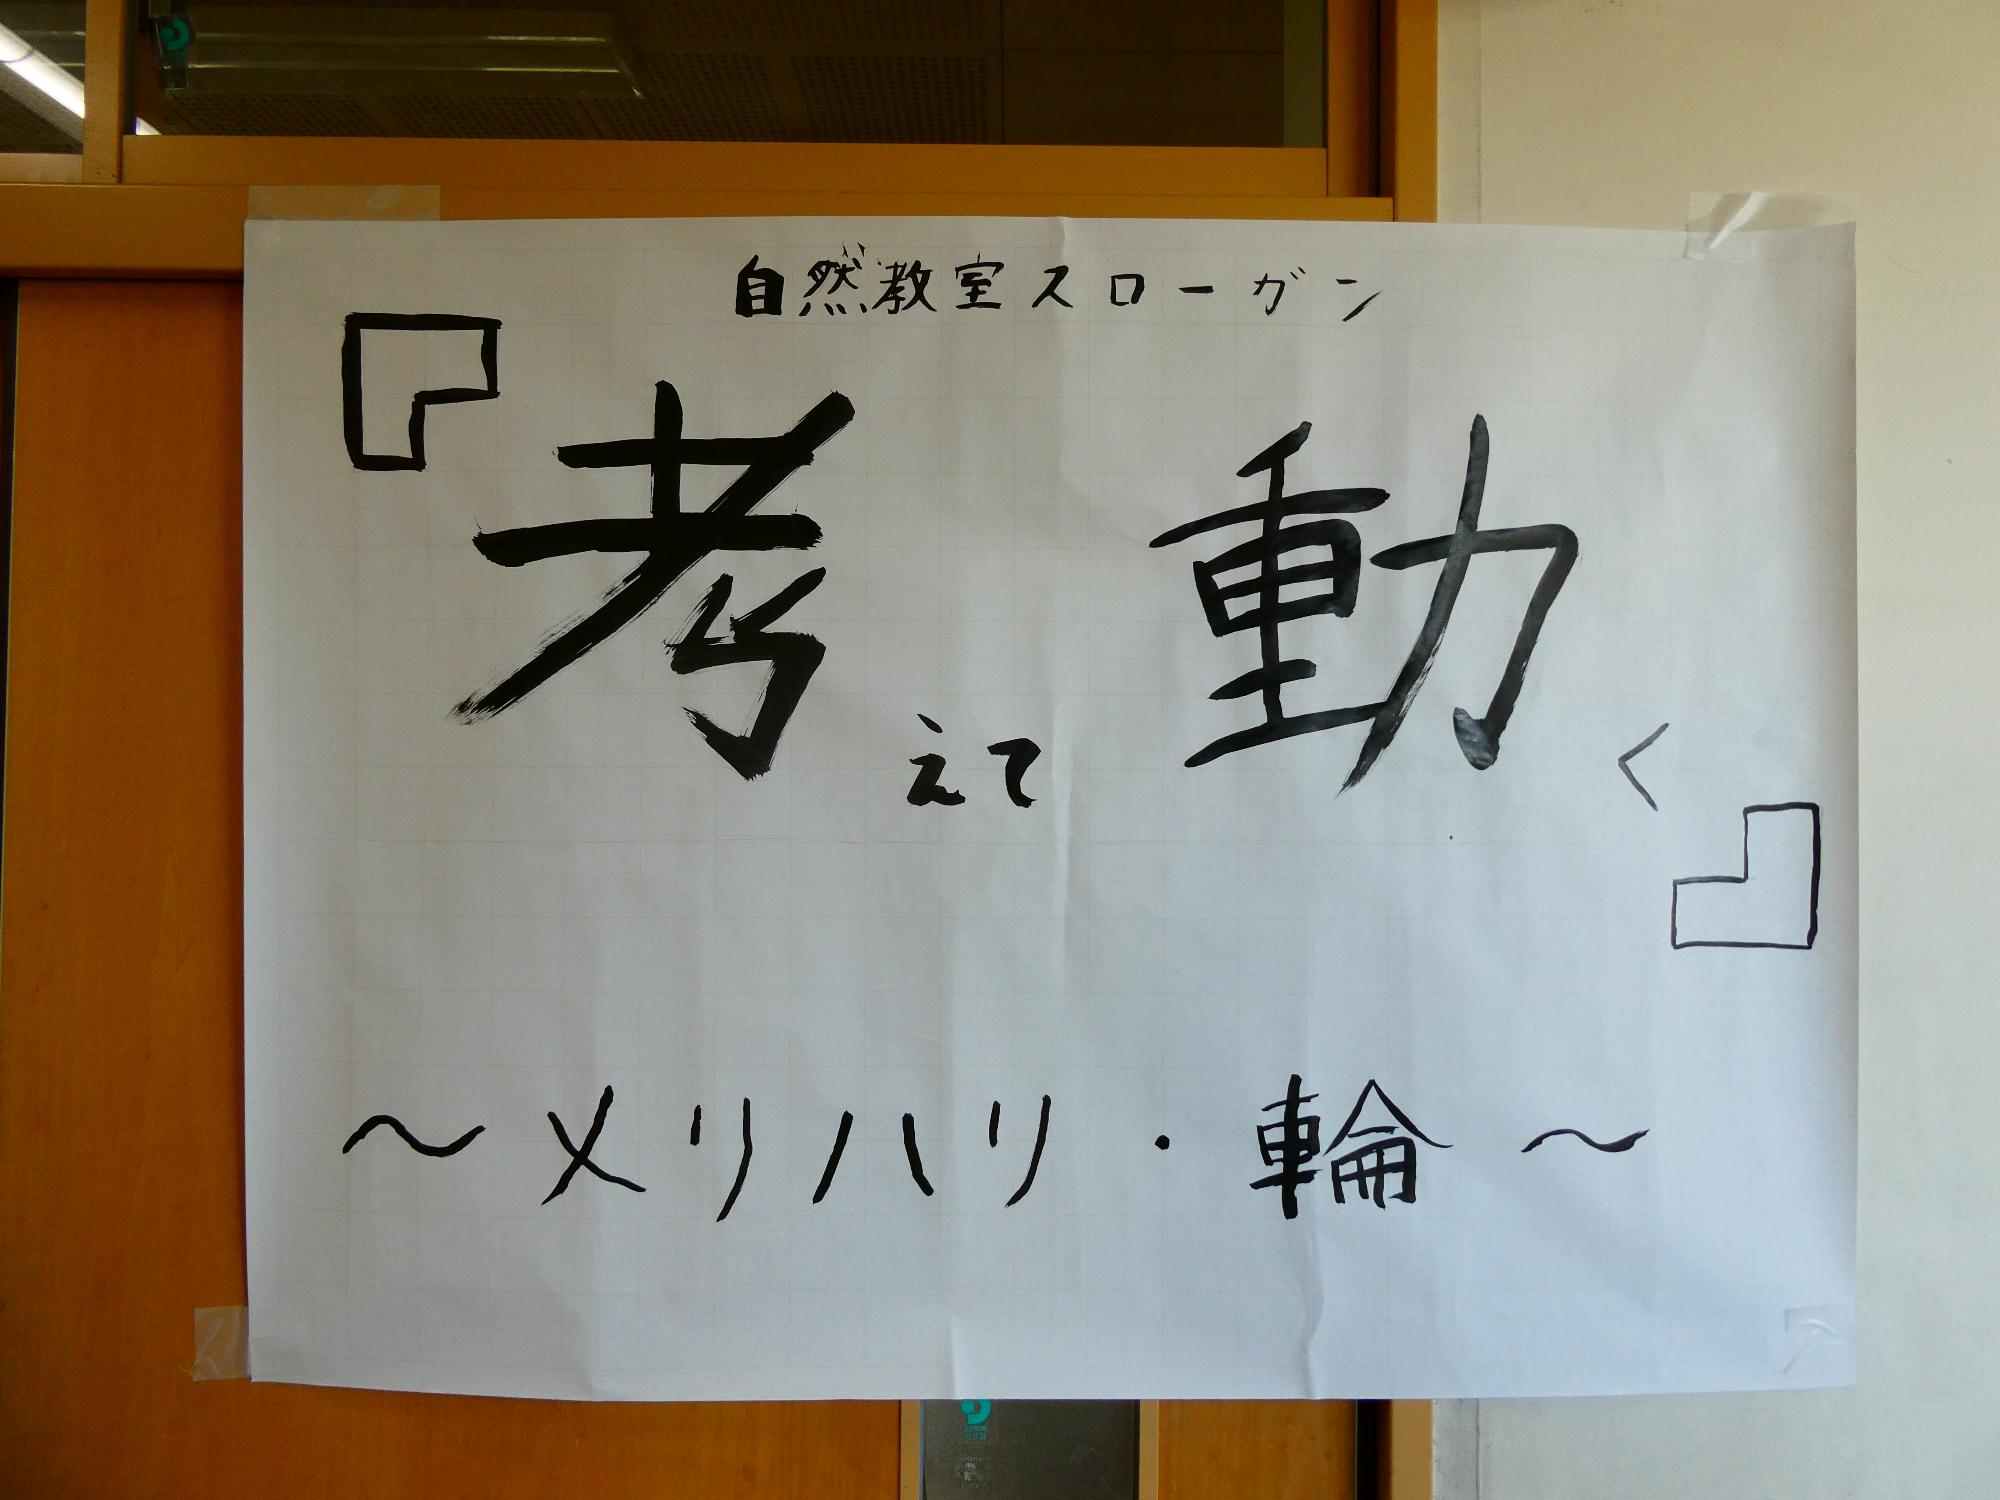 自然教室スローガン
『考えて動く』
～メリハリ・輪～